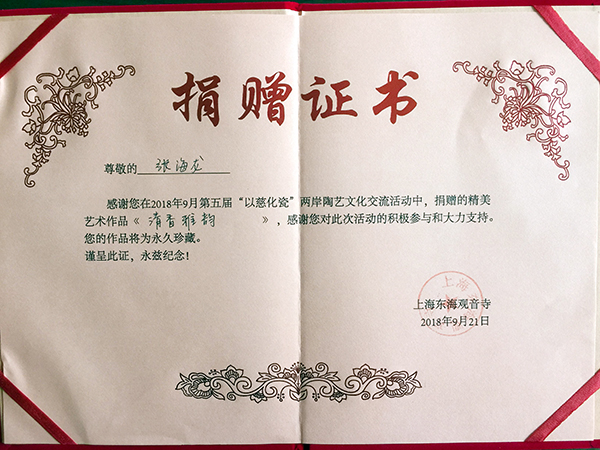 捐赠证书
尊敬的 张海龙
感谢您在2018年9月第五届“以慈化瓷”两岸陶艺文化交流活动中，捐赠的精美
艺术作品《 清香雅韵 》，感谢您对此次活动的积极参与和大力支持。
您的作品将为永久珍藏。
谨呈此证，永兹纪念！
上海
上海东海观音寺
2018年9月21日